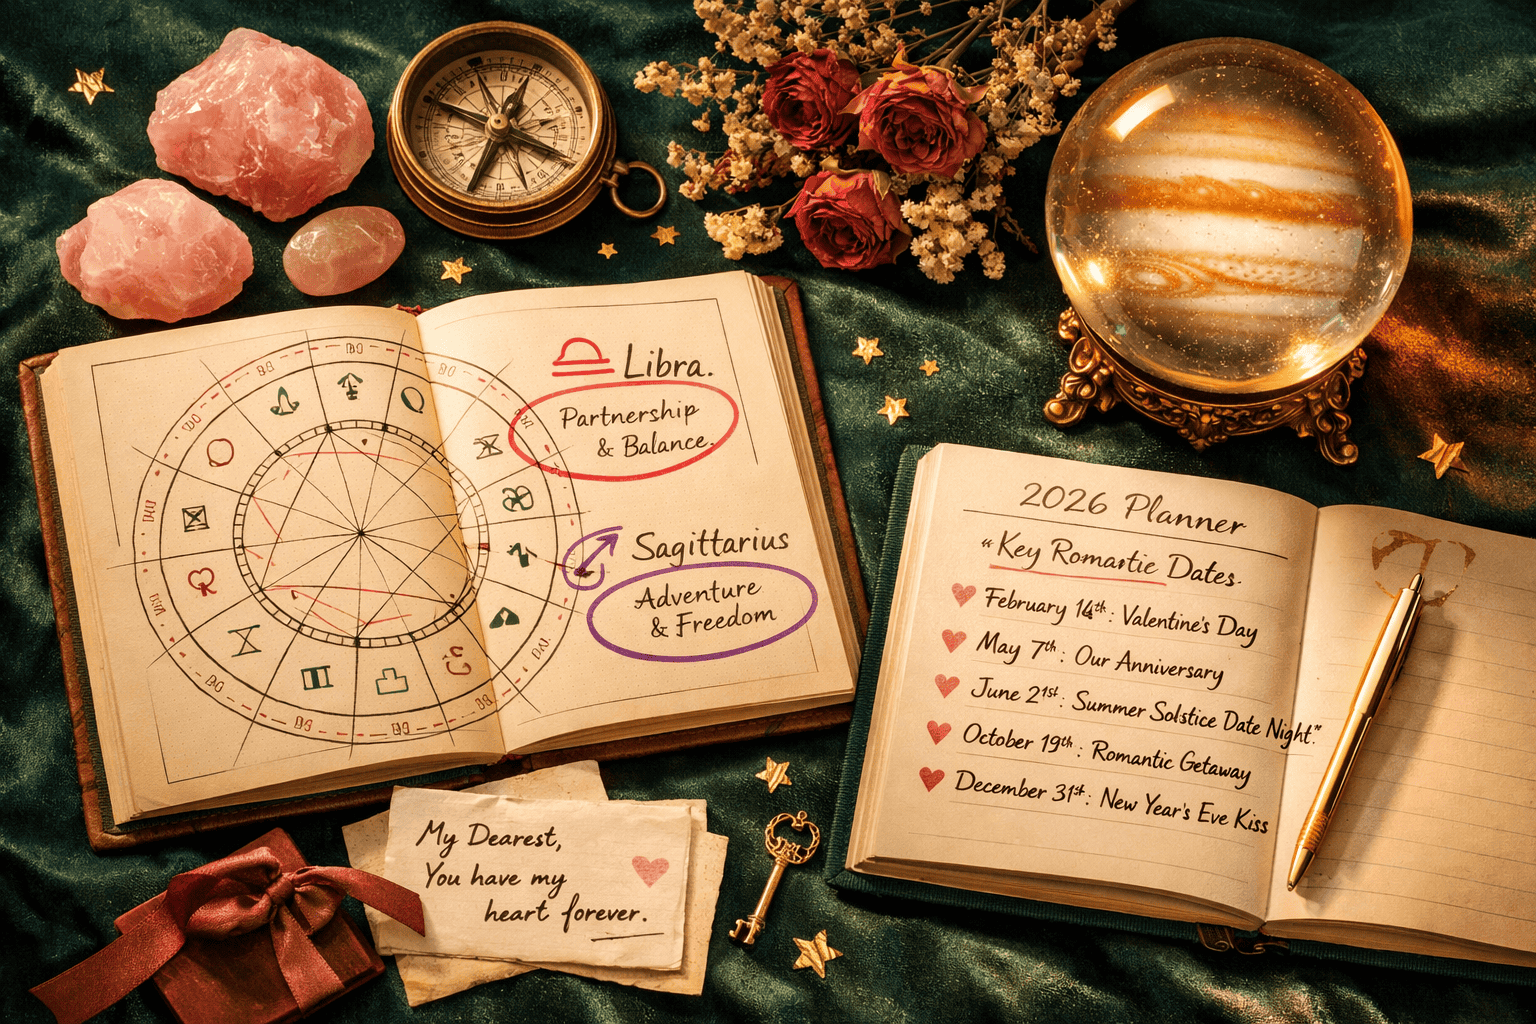 Libra.
Partnership
& Balance.
Sagittarius
Adventure
& Freedom
2026 Planner
"Key Romantic Dates.
February 14th: Valentine's Day
May 7th: Our Anniversary
June 21st: Summer Solstice Date Night."
October 19th: Romantic Getaway
December 31st: New Year's Eve Kiss
My Dearest,
You have my
heart forever.